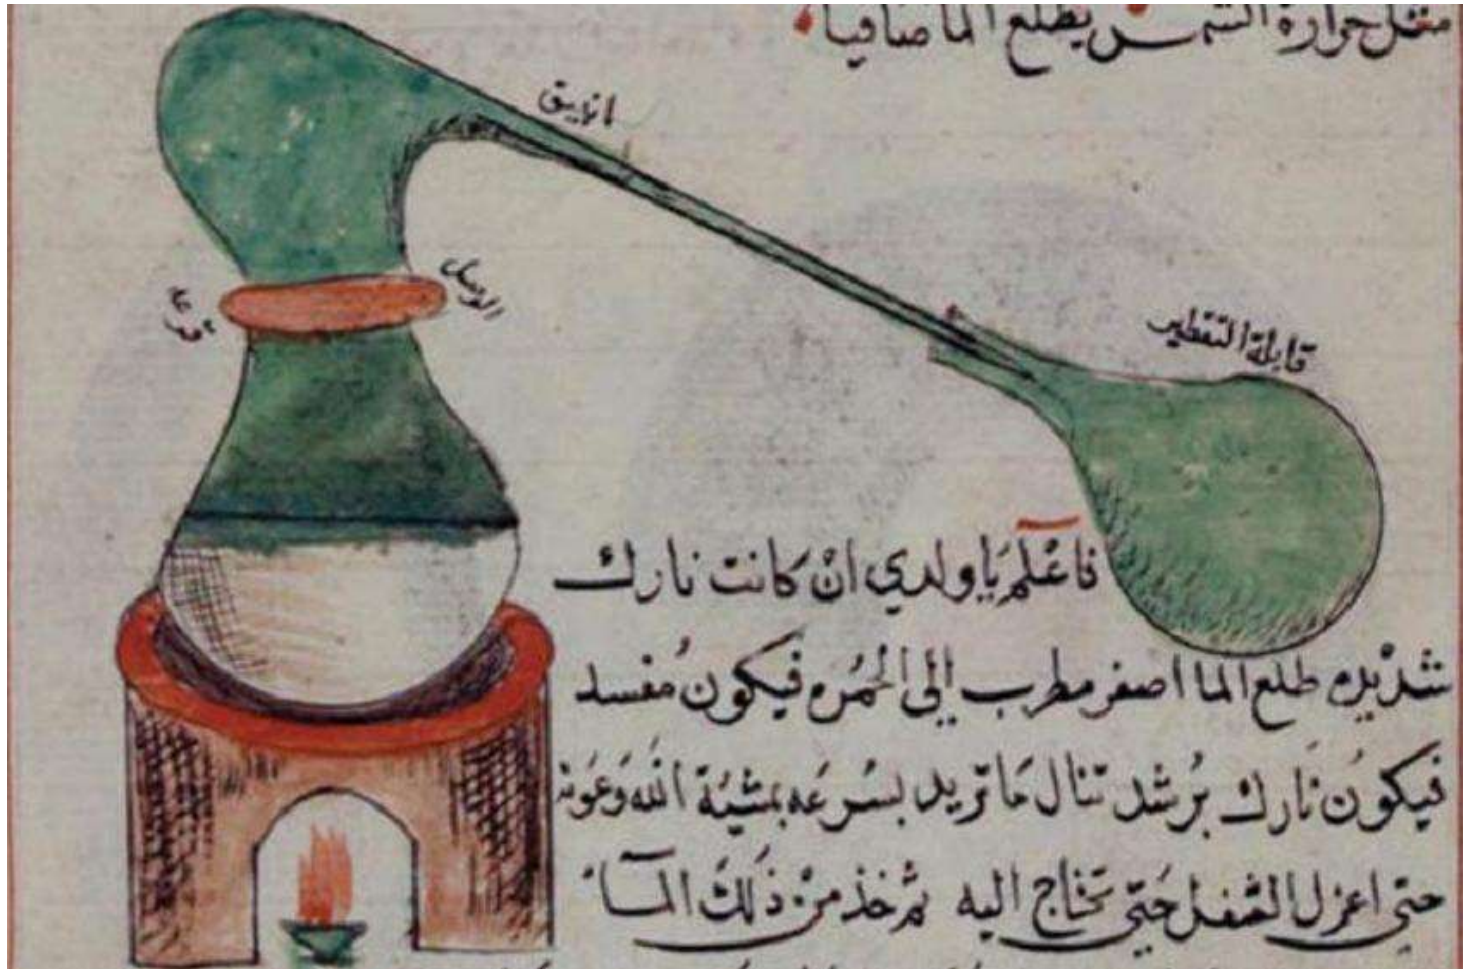 مثل حرارة الشمس يطلع الما صافيا
انبيق
الوصل
قرعة
قابلة التقطير
فاعْلم يَا ولدي انْ كانت نارك
شديْده طلع الما اصفر مطرب الي الحُمره فيكونُ مُفسد
فيكونُ نَارك برُشد تنال مَا تريد بسُرعَه بمشيّة الله وَعَونه
حتي اعزل الثفل حَتّي تحتاج اليه ثم خذ منْ ذَلكَ المآء